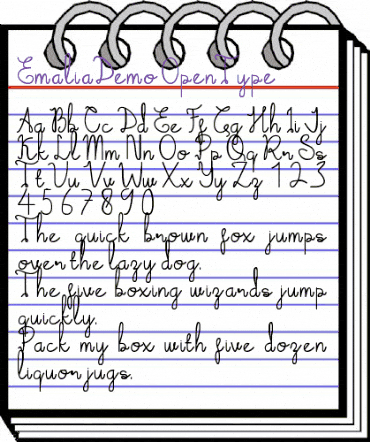 EmaliaDemo OpenType
Aa Bb Cc Dd Ee Ff Gg Hh Ii Jj
Kk Ll Mm Nn Oo Pp Qq Rr Ss
Tt Uu Vv Ww Xx Yy Zz 1 2 3
4 5 6 7 8 9 0
The quick brown fox jumps
over the lazy dog.
The five boxing wizards jump
quickly.
Pack my box with five dozen
liquor jugs.